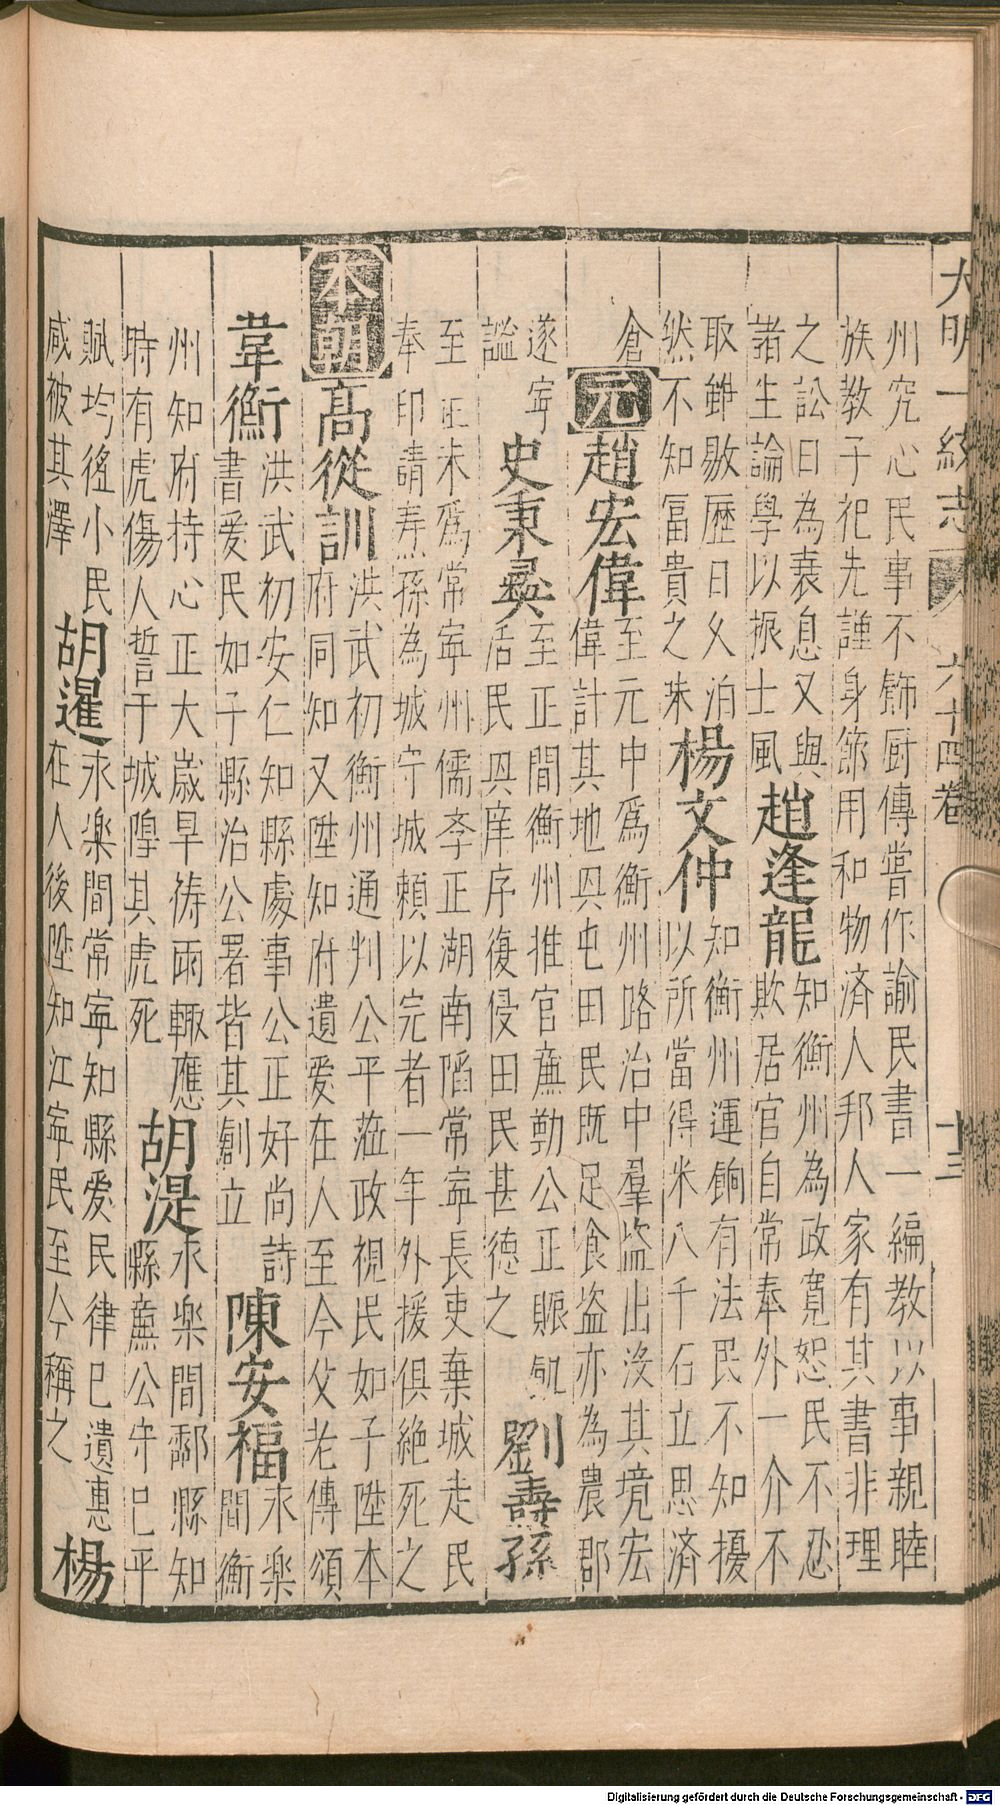 大明一統志　六十四卷　十三
州究心民事不飾厨傳嘗作諭民書一編教以事親睦
族教子祀先謹身節用和物済人邦人家有其書非理
之訟日為衰息又與
諸生論學以振士風
趙逢龍
知衡州為政寬恕民不忍
欺居官自常奉外一介不
取雖敭歷日久泊
然不知冨貴之味
楊文仲
知衡州運餉有法民不知擾
以所當得米八千石立思済
倉
元
趙宏偉
至元中爲衡州路治中羣盗出没其境宏
偉計其地與屯田民既足食盗亦為農郡
遂寧
謐
史秉彝
至正間衡州推官廉勤公正賑飢
活民興庠序復侵田民甚德之
劉壽孫
至正末爲常寧州儒李正湖南陷常寧長吏棄城走民
奉印請寿孫為城守城頼以完者一年外援俱絶死之
本朝
高從訓
洪武初衡州通判公平蒞政視民如子陞本
府同知又陞知府遺爱在人至今父老傳頌
韋衡
洪武初安仁知縣處事公正好尚詩
書爱民如子縣治公署皆其創立
陳安福
永楽
間衡
州知府持心正大嵗旱祷雨輙應
時有虎傷人誓于城隍其虎死
胡湜
永楽間酃縣知
縣廉公守己平
賦均徭小民
咸被其澤
胡暹
永楽間常寧知縣爱民律己遺惠
在人後陞知江寧民至今稱之
楊
Digitalisierung gefördert durch die Deutsche Forschungsgemeinschaft - DFG